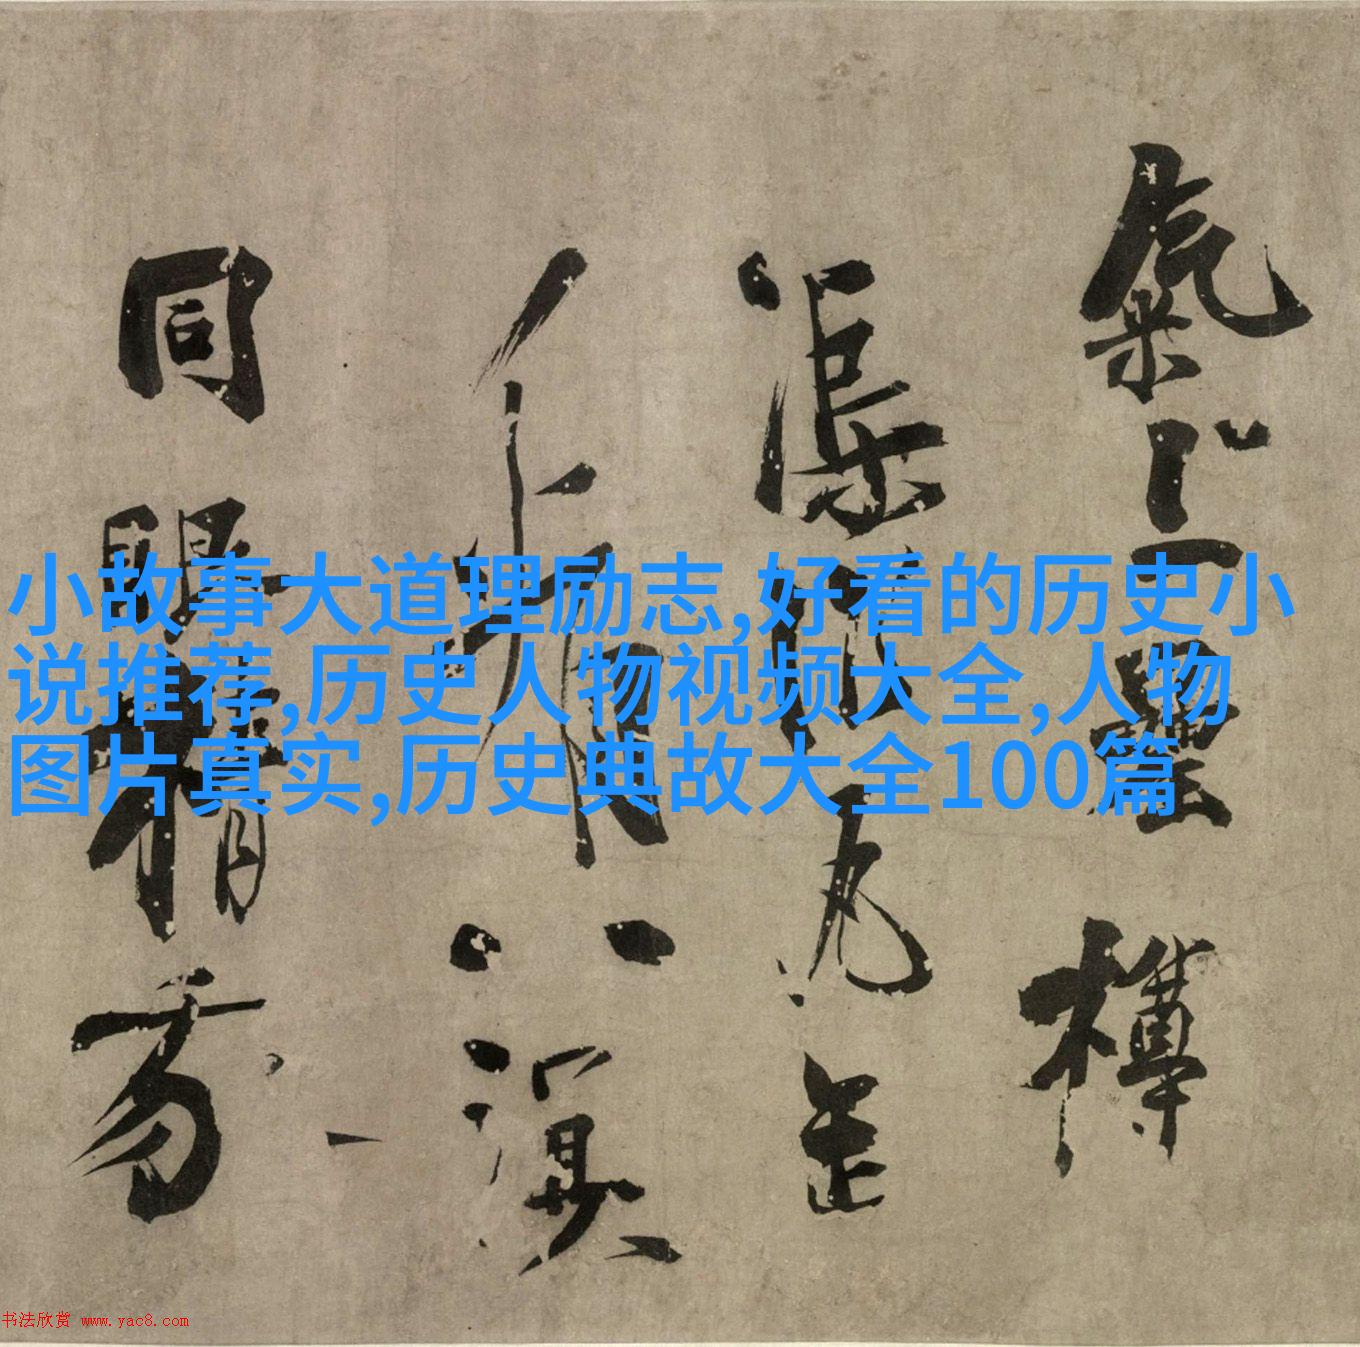 小故事大道理励志,好看的历史小
说推荐,历史人物视频大全,人物
图片真实,历史典故大全100篇
氣上 樽
渠
八溟
同 精
书法欣赏 www.yac8.com